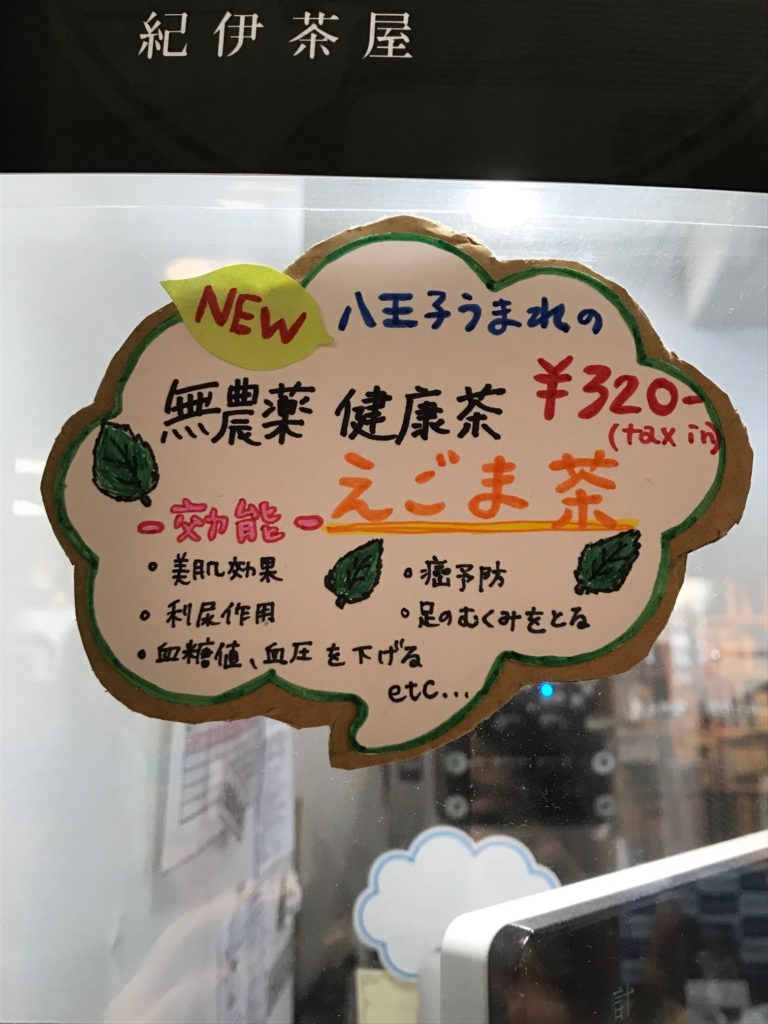 紀伊茶屋
NEW 八王子うまれの
無農薬 健康茶 ¥320-
(tax in)
えごま茶
-効能-
・美肌効果
・癌予防
・利尿作用
・足のむくみをとる
・血糖値、血圧を下げる
etc...
計